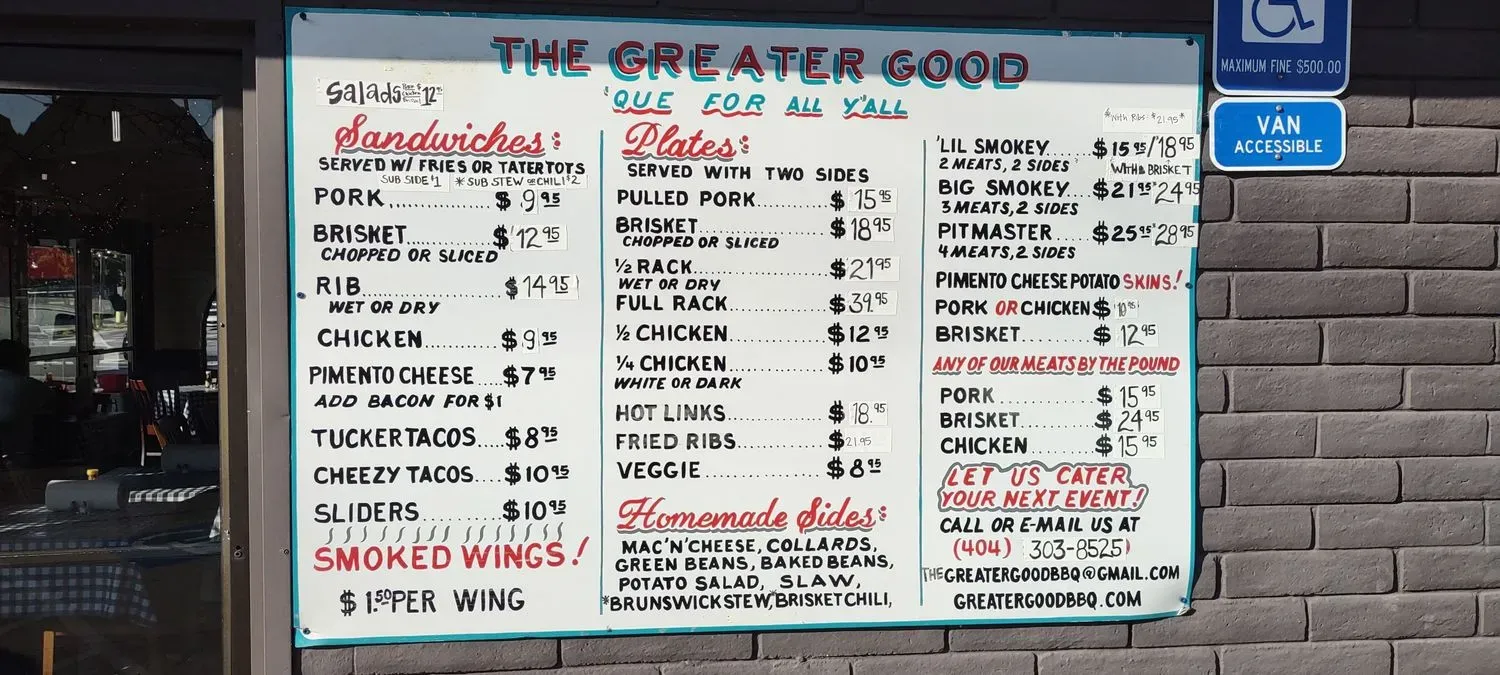 THE GREATER GOOD
'QUE FOR ALL Y'ALL
Salads 12
Sandwiches:
SERVED W/ FRIES OR TATERTOTS
SUB SIDE $1 *SUB STEW OR CHILI $2
PORK............ $ 9.95
BRISKET............ $ 12.95
CHOPPED OR SLICED
RIB............ $ 14.95
WET OR DRY
CHICKEN............ $ 9.95
PIMENTO CHEESE.... $7.95
ADD BACON FOR $1
TUCKER TACOS.... $8.95
CHEEZY TACOS.... $10.95
SLIDERS.......... $10.95
SMOKED WINGS!
$ 1.50 PER WING
Plates:
SERVED WITH TWO SIDES
PULLED PORK.......... $ 15.95
BRISKET.................. $ 18.95
CHOPPED OR SLICED
½ RACK.................. $ 21.95
WET OR DRY
FULL RACK.............. $ 39.95
½ CHICKEN.............. $ 12.95
¼ CHICKEN.............. $ 10.95
WHITE OR DARK
HOT LINKS.............. $ 18.95
FRIED RIBS.............. $ 21.95
VEGGIE.................. $ 8.95
Homemade Sides:
MAC'N'CHEESE, COLLARDS,
GREEN BEANS, BAKED BEANS,
POTATO SALAD, SLAW,
*BRUNSWICK STEW, *BRISKET CHILI,
*With Ribs: $21.95*
'LIL SMOKEY..... $15.95/$18.95
2 MEATS, 2 SIDES WITH BRISKET
BIG SMOKEY... $21.95 24.95
3 MEATS, 2 SIDES
PITMASTER..... $25.95 28.95
4 MEATS, 2 SIDES
PIMENTO CHEESE POTATO SKINS!
PORK OR CHICKEN $ 10.95
BRISKET.......... $ 12.95
ANY OF OUR MEATS BY THE POUND
PORK ............ $ 15.95
BRISKET.......... $ 24.95
CHICKEN......... $ 15.95
LET US CATER
YOUR NEXT EVENT!
CALL OR E-MAIL US AT
(404) 303-8525
THEGREATERGOODBBQ@GMAIL.COM
GREATERGOODBBQ.COM
MAXIMUM FINE $500.00
VAN
ACCESSIBLE